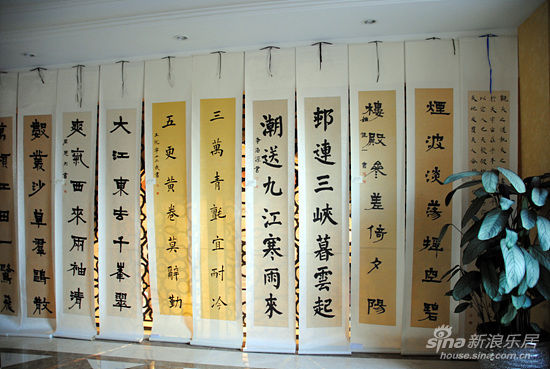 煙波淡蕩搖空碧
樓殿參差倚夕陽
邨連三峽暮雲起
潮送九江寒雨來
三萬青氈宜耐冷
五更黃卷莫辭勤
大江東去千峯翠
爽氣西來兩袖清
數叢沙草羣鷗散
萬頃江田一鷺飛
sina 新浪乐居
house.sina.com.cn